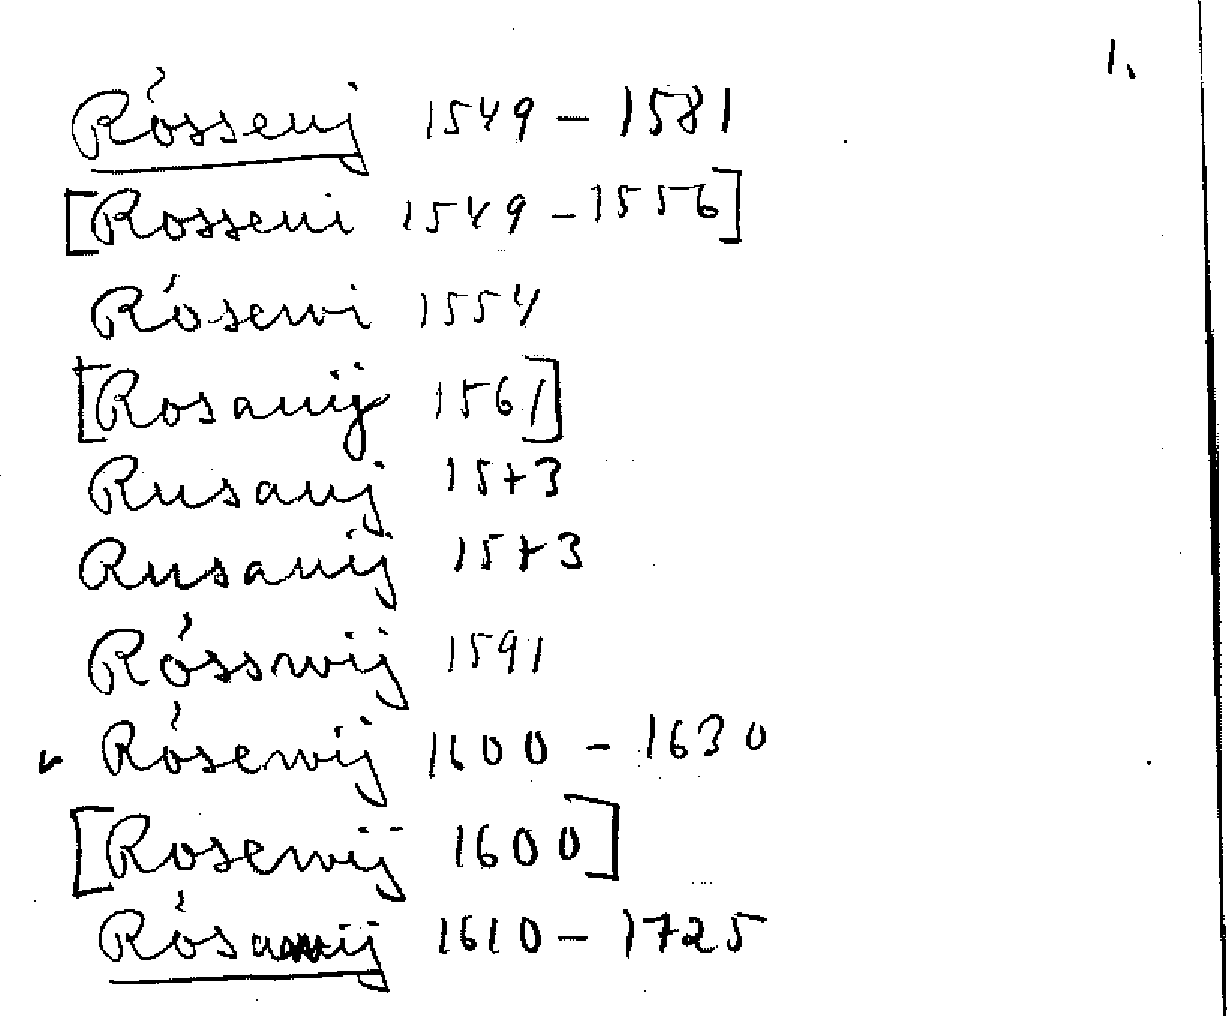 1.
Róssenj 1549 – 1581
[Rosseni 1549 – 1556]
Rósewi 1554
[Rosanij 1561]
Rusanj 1573
Rusanij 1573
Rósswij 1591
Rósewij 1600 – 1630
[Rosewij 1600]
Rósanij 1610 – 1725